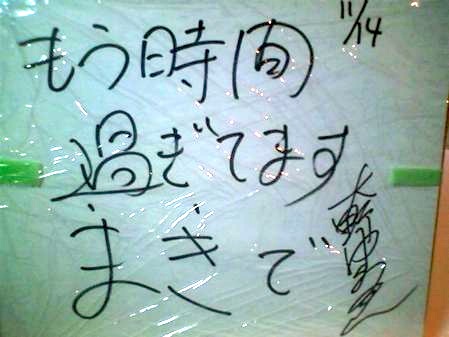 11/14
もう時間
過ぎてます
まきで